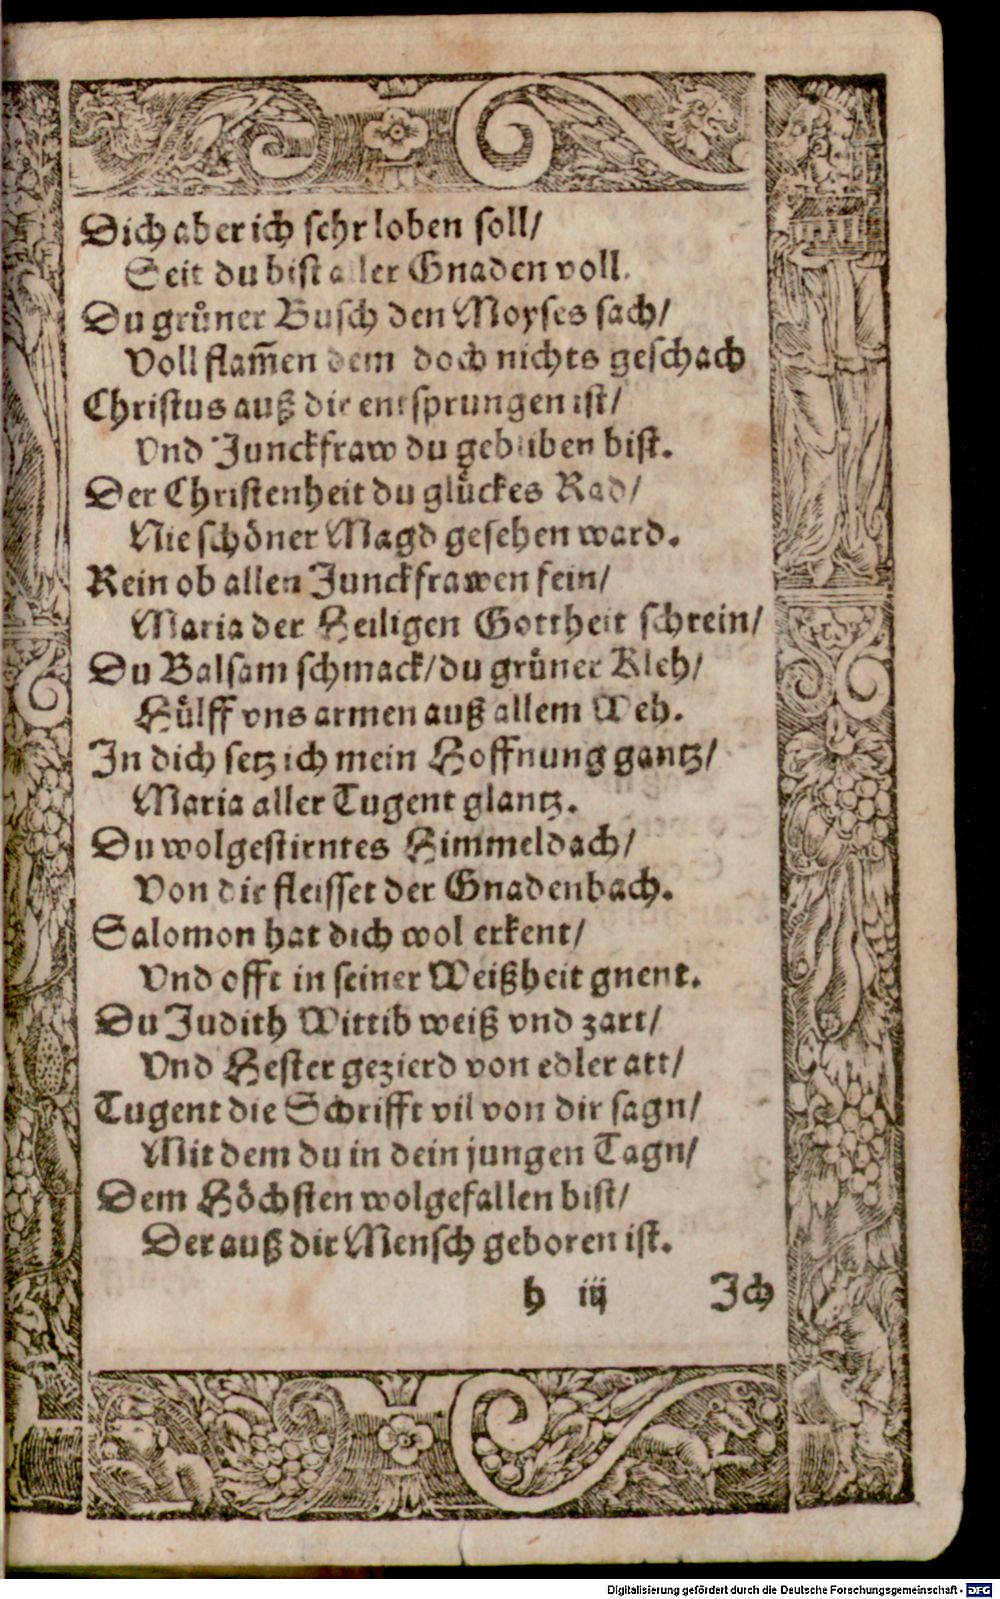 Dich aber ich sehr loben soll/
Seit du bist aller Gnaden voll.
Du grůner Busch den Moyses sach/
Voll flam̃en dem doch nichts geschach
Christus auß dir entsprungen ist/
Vnd Junckfraw du gebliben bist.
Der Christenheit du glůckes Rad/
Nie schöner Magd gesehen ward.
Rein ob allen Junckfrawen fein/
Maria der Heiligen Gottheit schrein/
Du Balsam schmack/du grůner Kleh/
Hůlff vns armen auß allem Weh.
In dich setz ich mein Hoffnung gantz/
Maria aller Tugent glantz.
Du wolgestirntes Himmeldach/
Von dir fleisset der Gnadenbach.
Salomon hat dich wol erkent/
Vnd offt in seiner Weißheit gnent.
Du Judith Wittib weiß vnd zart/
Vnd Hester gezierd von edler att/
Tugent die Schrifft vil von dir sagn/
Mit dem du in dein jungen Tagn/
Dem Höchsten wolgefallen bist/
Der auß dir Mensch geboren ist.
h iij Ich
Digitalisierung gefördert durch die Deutsche Forschungsgemeinschaft - DFG